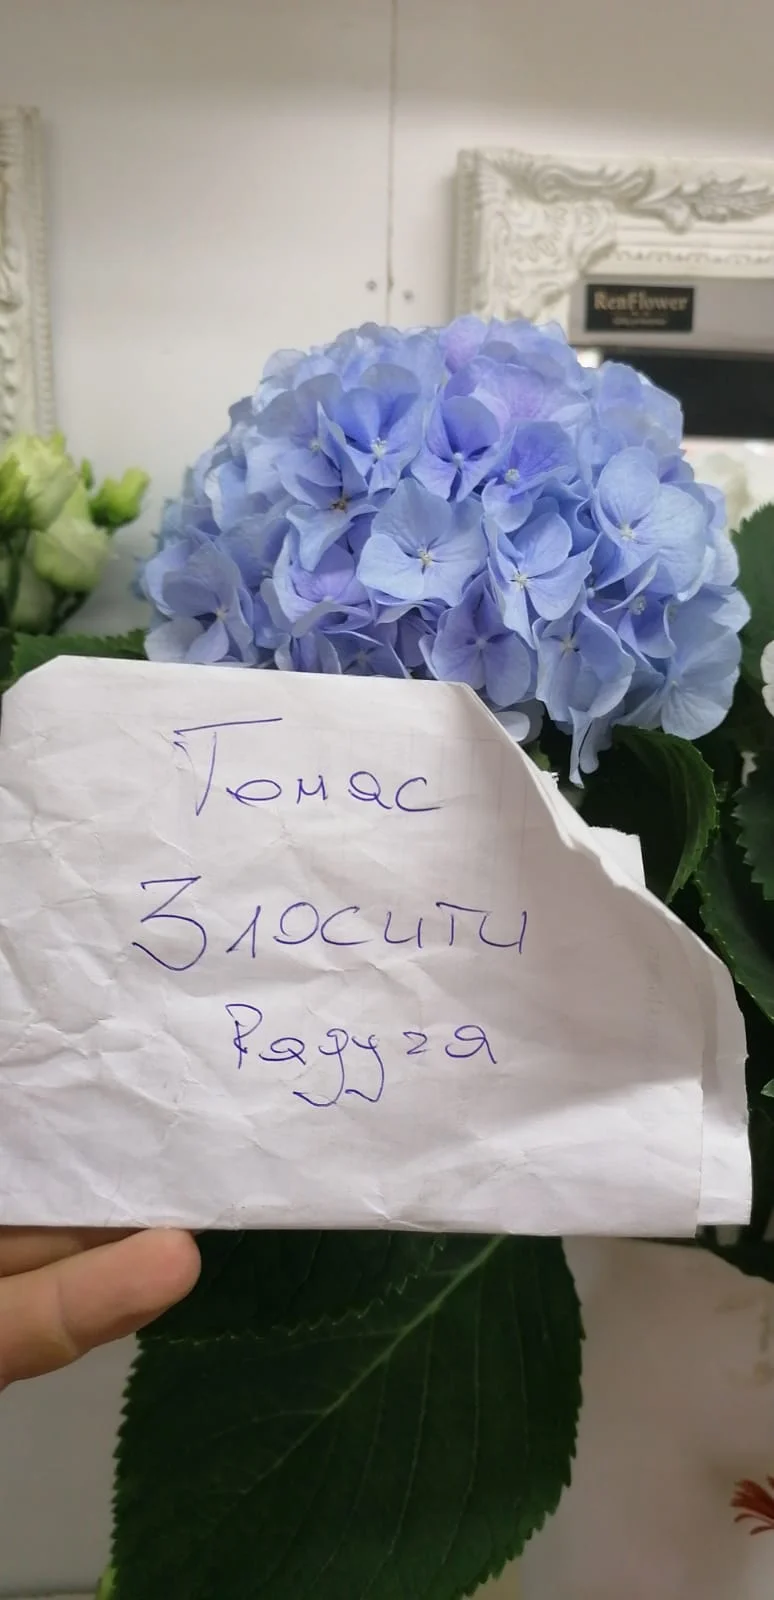 RenFlower
Томас
Злосити
Радуга